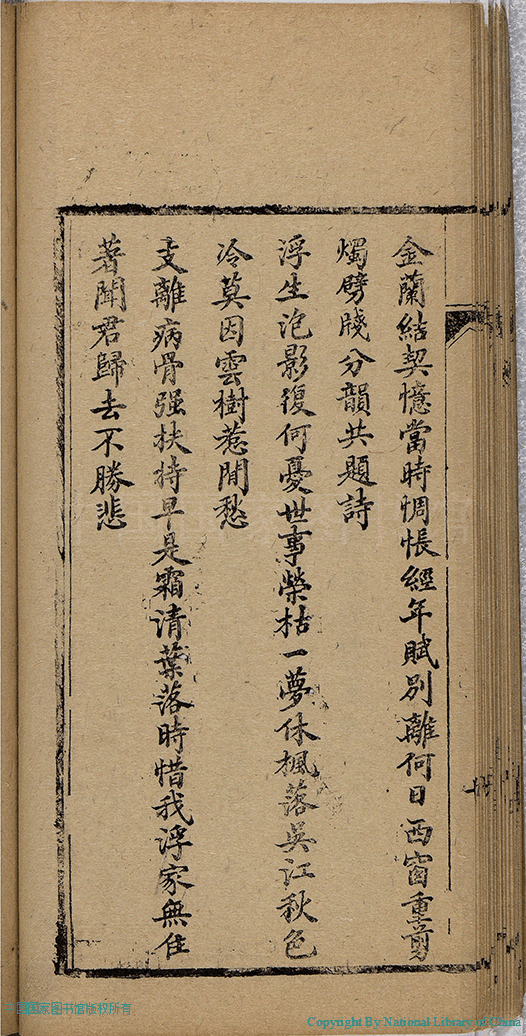 金蘭結契憶當時惆悵經年賦别離何日西窗重剪
燭劈牋分韻共題詩
浮生泡影復何憂世事榮枯一夢休楓落吳江秋色
冷莫因雲樹惹閒愁
支離病骨强扶持早是霜清葉落時惜我浮家無住
著聞君歸去不勝悲
中国国家图书馆版权所有
Copyright By National Library in China